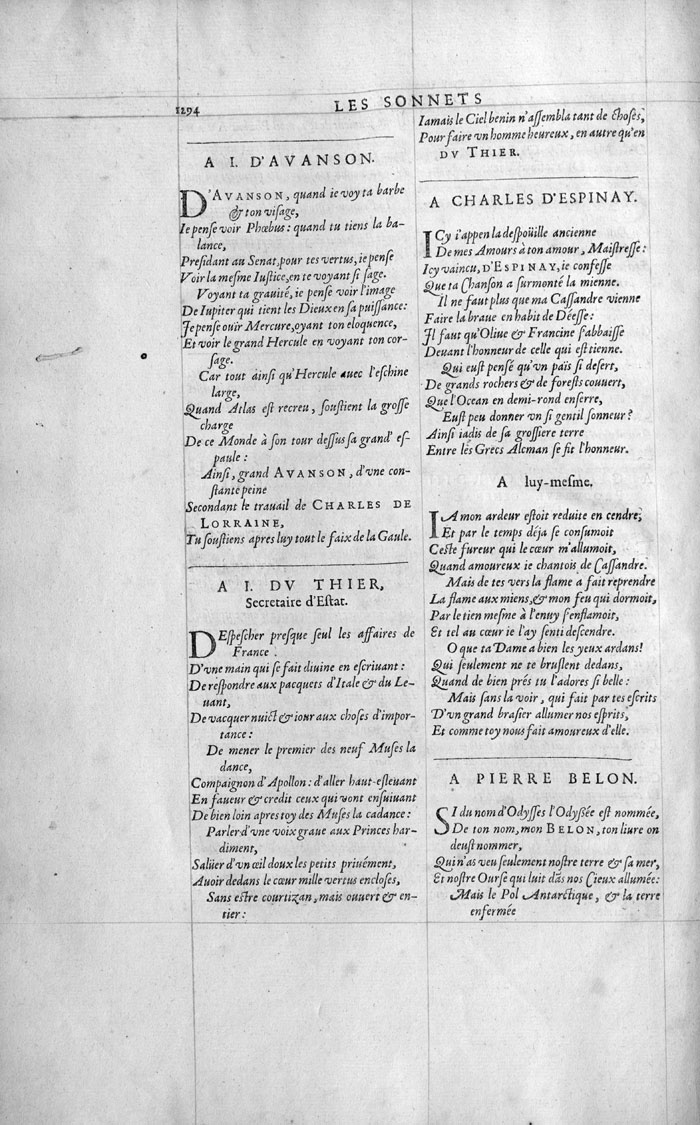 1294
LES SONNETS
A I. D'AVANSON.
D'AVANSON, quand ie voy ta barbe
& ton visage,
Ie pense voir Phœbus: quand tu tiens la ba-
lance,
Presidant au Senat, pour tes vertus, ie pense
Voir la mesme Iustice, en te voyant si sage.
Voyant ta grauité, ie pense voir l'image
De Iupiter qui tient les Dieux en sa puissance:
Ie pense ouir Mercure, oyant ton eloquence,
Et voir le grand Hercule en voyant ton cor-
sage.
Car tout ainsi qu'Hercule auec l'eschine
large,
Quand Atlas est recreu, soustient la grosse
charge
De ce Monde à son tour dessus sa grand' es-
paule:
Ainsi, grand AVANSON, d'vne con-
stante peine
Secondant le trauail de CHARLES DE
LORRAINE,
Tu soustiens apres luy tout le faix de la Gaule.
A I. DV THIER,
Secretaire d'Estat.
DEspescher presque seul les affaires de
France:
D'vne main qui se fait diuine en escriuant:
De respondre aux pacquets d'Itale & du Le-
uant,
De vacquer nuict & iour aux choses d'impor-
tance:
De mener le premier des neuf Muses la
dance,
Compagnon d'Apollon: d'aller haut-esleuant
En faueur & credit ceux qui vont ensuiuant
De bien loin apres toy des Muses la cadance:
Parler d'vne voix graue aux Princes har-
diment,
Salüer d'vn œil doux les petits priuément,
Auoir dedans le cœur mille vertus encloses,
Sans estre courtizan, mais ouuert & en-
tier:
Iamais le Ciel benin n'assembla tant de choses,
Pour faire vn homme heureux, en autre qu'en
DV THIER.
A CHARLES D'ESPINAY.
ICy i'appen la despoüille ancienne
De mes Amours à ton amour, Maistresse:
Icy vaincu, D'ESPINAY, ie confesse
Que ta Chanson a surmonté la mienne.
Il ne faut plus que ma Cassandre vienne
Faire la braue en habit de Déesse:
Il faut qu'Oliue & Francine s'abbaisse
Deuant l'honneur de celle qui est tienne.
Qui eust pensé qu'vn païs si desert,
De grands rochers & de forests couuert,
Que l'Ocean en demi-rond enserre,
Eust peu donner vn si gentil sonneur?
Ainsi iadis de sa grossiere terre
Entre les Grecs Alcman se fit l'honneur.
A luy-mesme.
IA mon ardeur estoit reduite en cendre,
Et par le temps déja se consumoit
Ceste fureur qui le cœur m'allumoit,
Quand amoureux ie chantois de Cassandre.
Mais de tes vers la flame a fait reprendre
La flame aux miens, & mon feu qui dormoit,
Par le tien mesme à l'enuy s'enflamoit,
Et tel au cœur ie l'ay senti descendre.
O que ta Dame a bien les yeux ardans!
Qui seulement ne te bruslent dedans,
Quand de bien prés tu l'adores si belle:
Mais sans la voir, qui fait par tes escrits
D'vn grand brasier allumer nos esprits,
Et comme toy nous fait amoureux d'elle.
A PIERRE BELON.
SI du nom d'Odysses l'Odyssée est nommée,
De ton nom, mon BELON, ton liure on
deust nommer,
Qui n'as veu seulement nostre terre & sa mer,
Et nostre Ourse qui luit dãs nos Cieux allumée:
Mais le Pol Antarctique, & la terre
enfermée